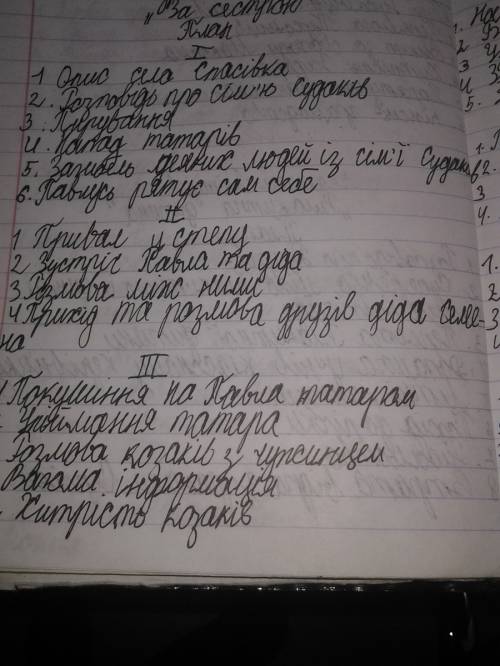 „За сестрою
План
I
1 Опис села Спасівка
2. Розповідь про сім'ю Судаків
3. Пірування
4. Напад татарів
5. Загибель деяких людей із сім'ї Судаків
6. Павлусь рятує сам себе
II
1 Привал у степу
2 Зустріч Павла та діда
3 Розмова між ними
4 Прихід та розмова друзів діда
на
III
Покушіння на Павла татаром
Упіймання татара
Розмова козаків з
Вагома інформація
Хитрість козаків